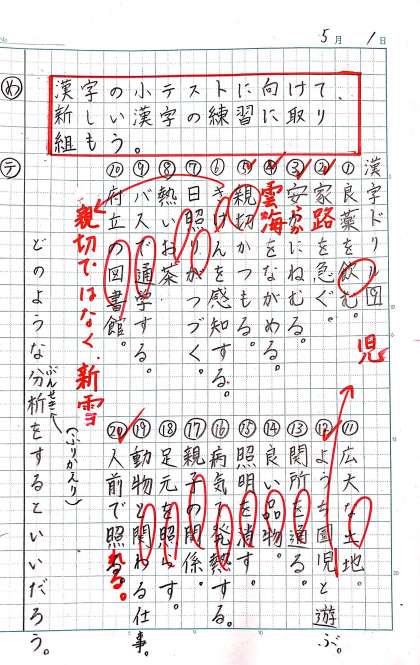 5月1日
め
漢字の小テストに向けて、
新しい漢字の練習に取り
組もう。
テ
漢字ドリル⑨
①良薬を飲む。
②家路を急ぐ。
③安らかにねむる。
④雲海をながめる。
⑤親切かつもる。
⑥きけんを感知する。
⑦日照りがつづく。
⑧熱いお茶
⑨バスで通学する。
⑩府立の図書館。
親切ではなく、新雪
児
⑪広大な土地。
⑫ようち園児と遊ぶ。
⑬関所を通る。
⑭良い品物。
⑮照明を消す。
⑯病気で発熱する。
⑰親子の関係。
⑱足元を照らす。
⑲動物と関わる仕事。
⑳人前で照れる。
(ふりかえり)
どのような分析をするといいだろう。
ぶんせき